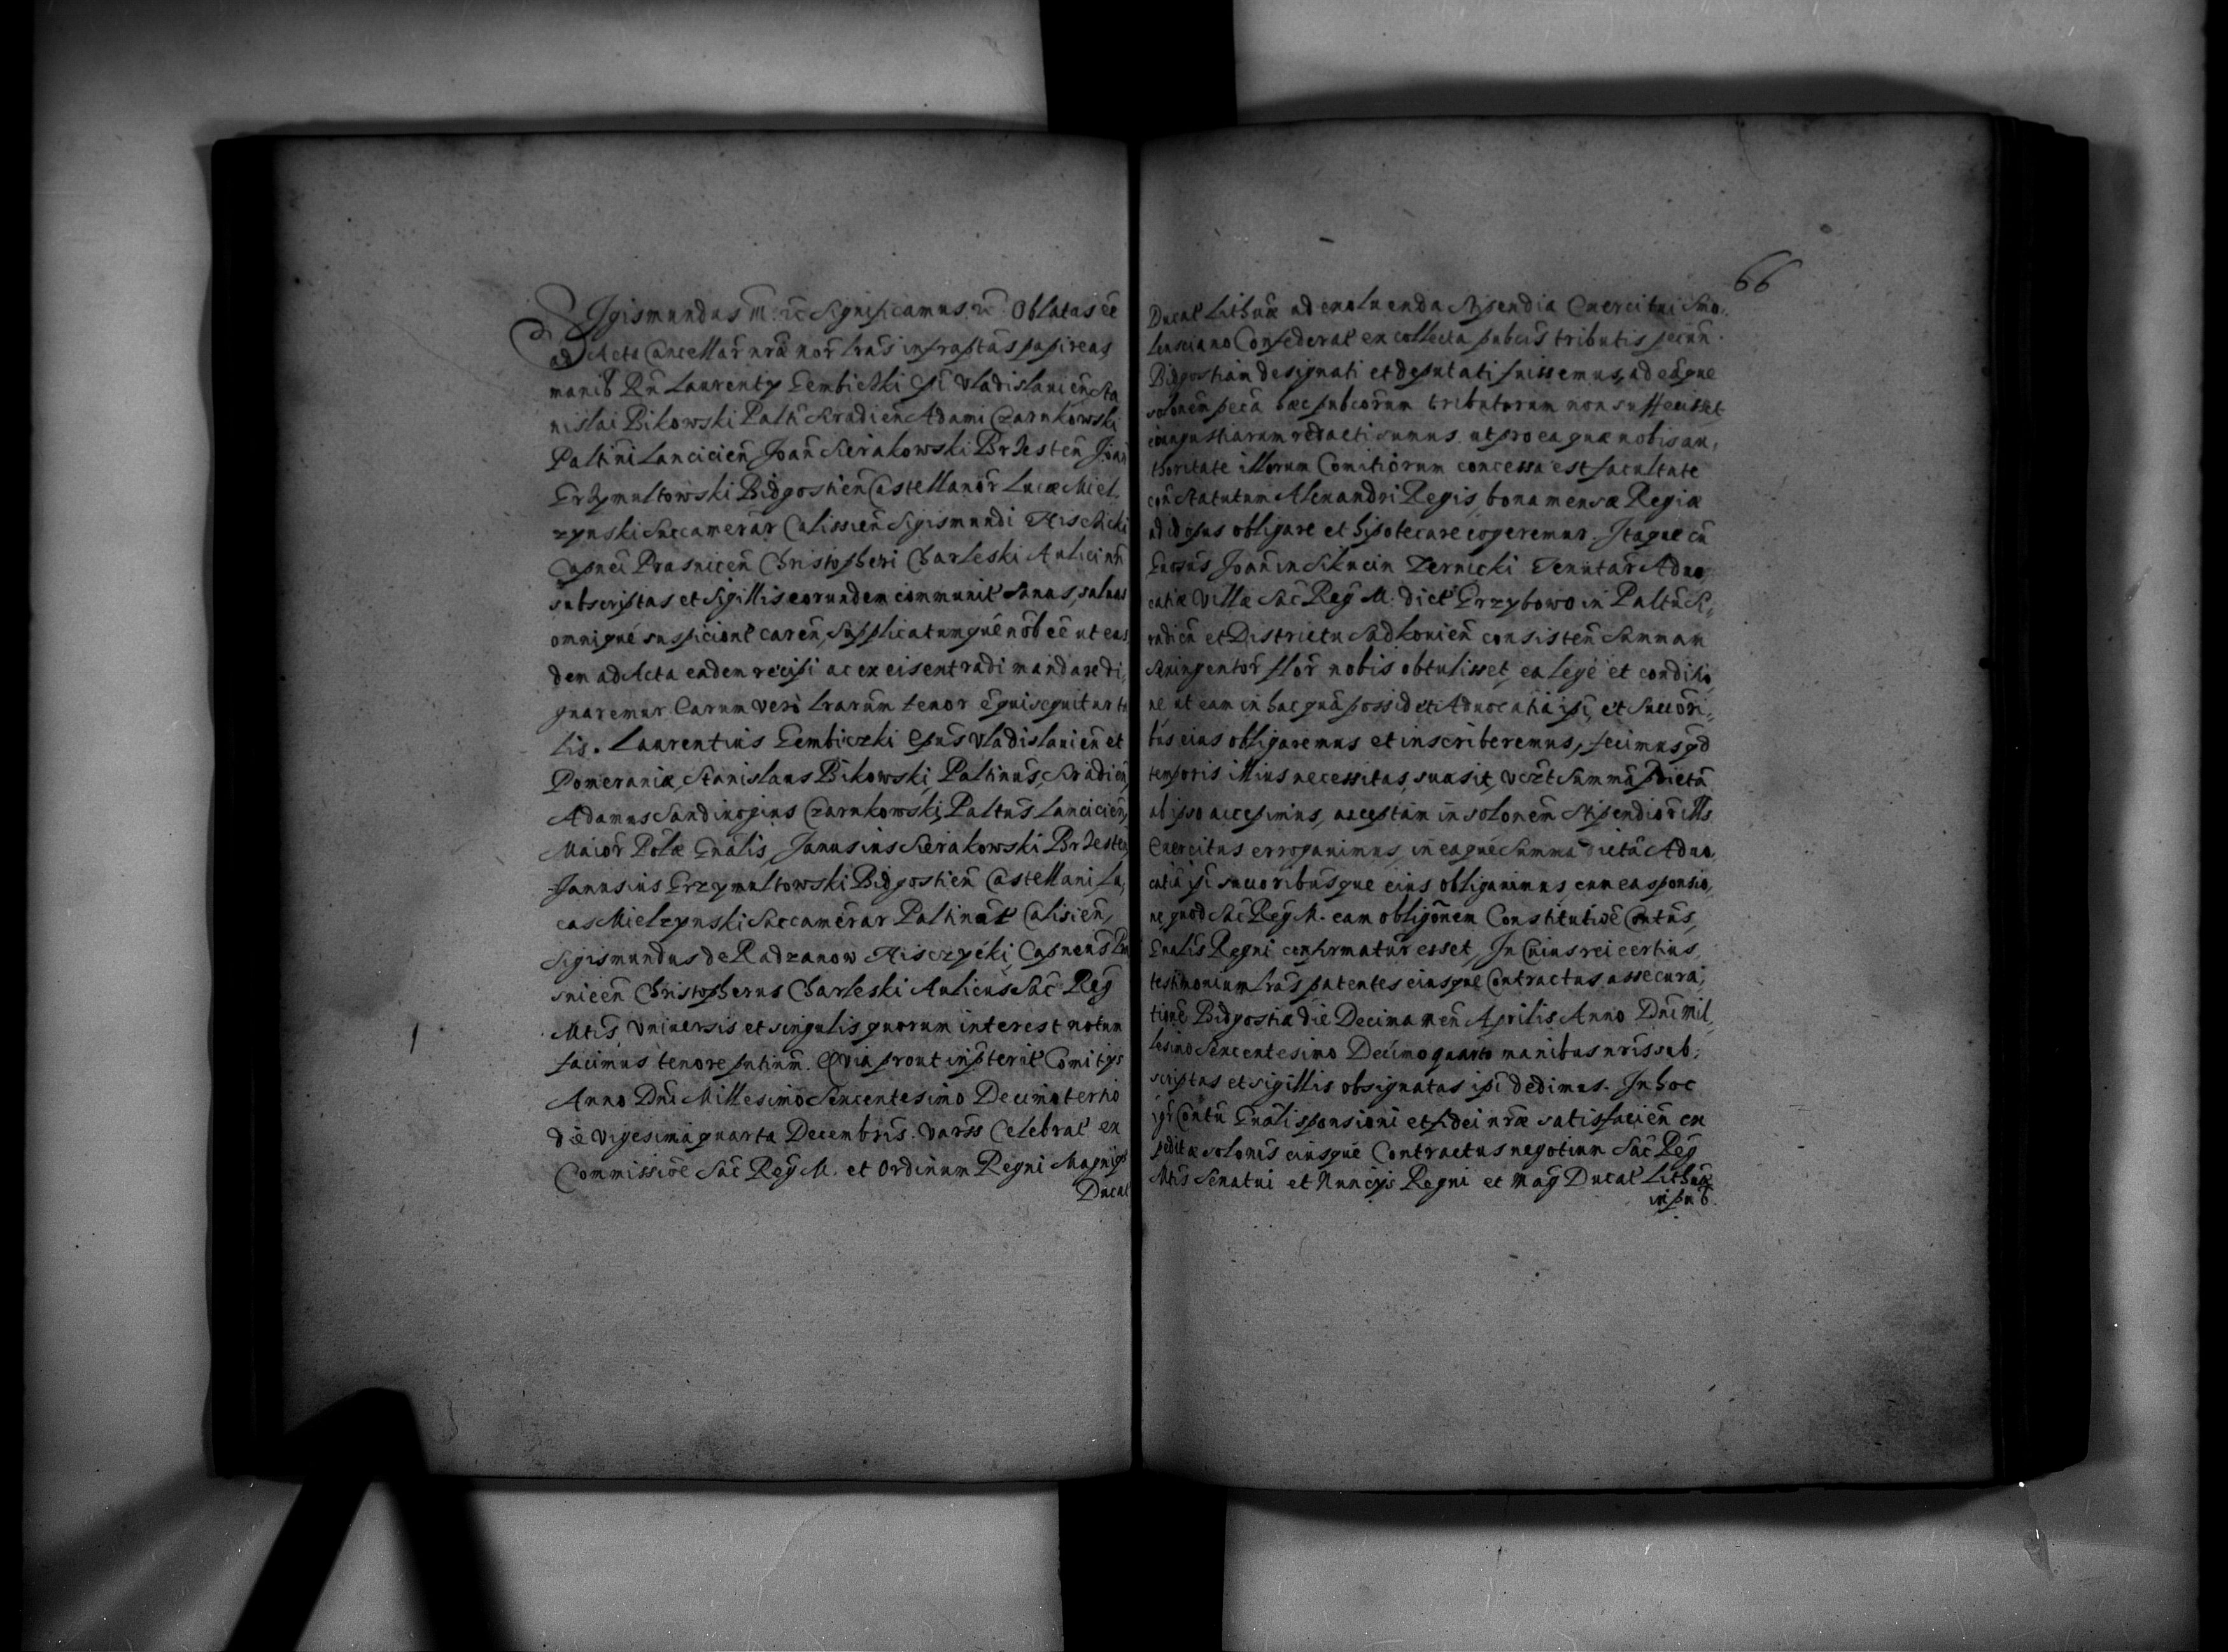 Sigismundus III. etc Significamus etc Oblatas ee͂
ad Acta Cancellar̃ nr̃æ nor̃ lr̃as infraptas papireas
manib Rñ Laurenty Gembiczki Epi Vladislauien̄ Sta
nislai Bikowski Paltñ Siradien̄ Adami Czarnkowski
Paltini Lancicien̄ Joan̄ Sierakowski Brzesten̄ Joan
Grzymultowski Bidgostien̄ Castellanor̃ Lucæ Miel,
zynski Succamerar̃ Calissien̄ Sigismundi Hisczicki
Capnei Prasnicen̄ Christopheri Charleski Aulici nr̃i
subscriptas et Sigillis eorundem communit sanas, saluas
omniqué suspicione caren̄, supplicatumqué nob ee͂ ut eas
dem ad Acta eadem recipi ac ex eis extradi mandare di,
gnaremur Earum vero lrarum tenor e͂ qui sequitur ta
lis. Laurentius Gembiczki Epũs Vladislauien̄ et
Pomeraniæ, Stanislaus Bikowski, Paltinus, Siradien̄
Adamus Sandiuogius Czarnkowski, Paltus̃ Lancicien̄,
Maior̃ Polæ Gnalis, Janusius Sierakowski Brzesten̄
Janusius Grzymultowski Bidgostien̄ Castellani Lu,
cas Mielzynski Succamerar Paltinat Calisien̄,
Sigismundus de Radzanow Hisczycki, Capneus Pra
snicen̄ Christopherus Charleski Aulicus Sac̄ Reg̃
Mtis, Vniuersis et singulis quorum interest notum
facimus tenore pntium̃. Quia prout in pterit Comitys
Anno Dñi Millesimo Sexcentesimo Decimotertio
die vigesima quarta Decembris. Vars̃ Celebrat ex
Commissioẽ Sac̄ Reg̃ M. et Ordinum Regni Magniq
Ducat
66
Ducat Lithuæ ad exoluenda Stipendia Exercitui Smo,
lensciano Confederat ex collecta pubcis tributis pecun̄.
Bidgostiam designati et deputati fuissemus, ad eaque
solonem̃ peca hæc pubcorum tributorum non suffecisset
eo angustiarum redacti sumus. ut pro ea quæ nobis au,
thoritate illorum Comitiorum concessa est facultate
con̄ Statutum Alexandri Regis, bona mensæ Regiæ
ad id opus obligare et hipotecare cogeremur. Itaque cũ
Gnosus Joan̄ in Skucin Zernicki Tenutar̃ Aduo,
catiæ Villæ Sac̄ Reg̃ M. dict Grzybowo in Paltu Si,
radien̄ et Districtu Sadkouien̄ consisten̄ Summam
Quingentor̃ flor̃ nobis obtulisset, ea lege et conditio,
ne ut eam in hac quã possidet Aduocatia ipi, et Succori,
bus eius obligaremus et inscriberemus, fecimus qd
temporis illius necessitas, suasit, vczt Summã pdictã
ab ipso accepimus, acceptam in solonem̃ Stipendior̃ ills
Exercitus erroganimus, in eaqué Summa dictã Aduo,
catiã ipi succoribusque eius obligauimus cum ea sponsio,
ne, quod Sac̄ Reg̃ M. eam obligõnem Constitutioẽ Contus,
Gnalis Regni confirmatur̃ esset, In Cuius rei certius,
testimonium lras̃ patentes eiusque Contractus assecura,
tione͂ Bidgostiæ die Decima men̄ Aprilis Anno Dñi Mil,
lesimo Sexcentesimo Decimo quarto manibus nris̃ sub,
scriptas et sigillis obsignatas ipi dedimus. In hoc
igr̃ Contu Gnali sponsioni et fidei nr̃æ satisfacien̄ ex
peditæ solonis eiusque Contractus negotium Sac̄ Reg̃
Mtis Senatui et Nuncijs Regni et Mag̃ Ducat Lithuæ
in pub.